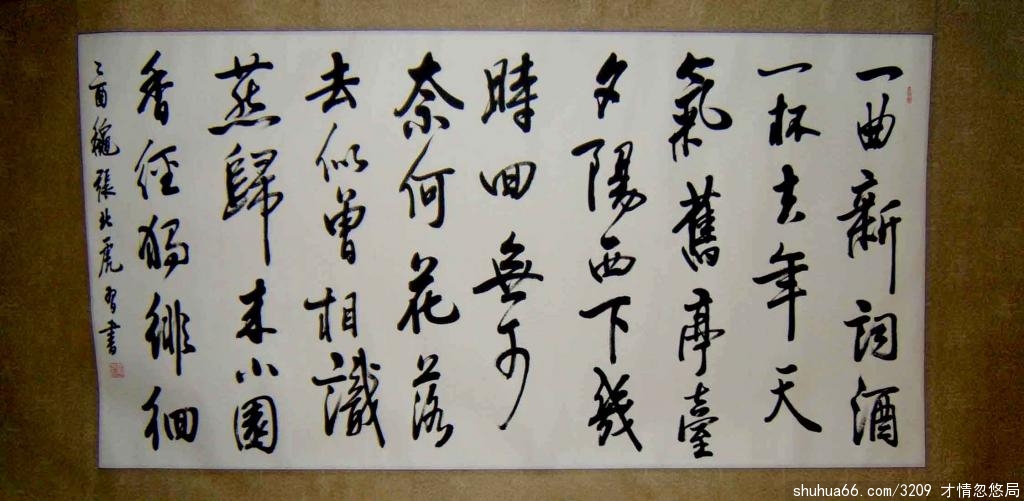 一曲新詞酒
一杯去年天
氣舊亭臺
夕陽西下幾
時回無可
奈何花落
去似曾相識
燕歸来小園
香徑獨徘徊
乙酉穐張北虎書
shuhua66.com/3209 才情忽悠局